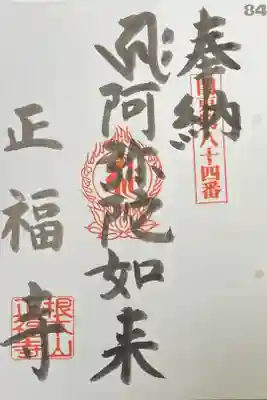 84
奉納
関東第八十四番
阿弥陀如来
正福寺
根本山
正福寺